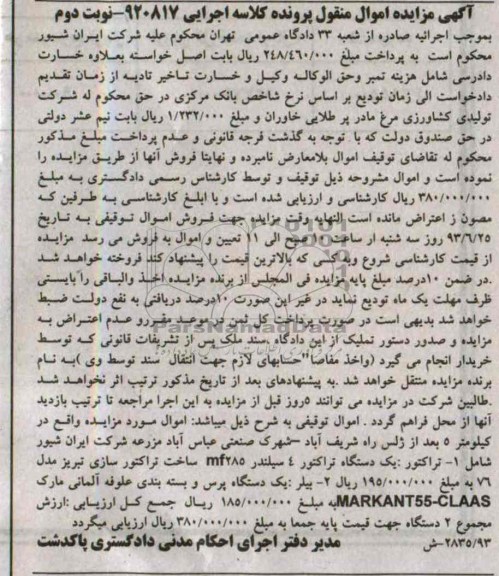 آگهی مزایده اموال منقول پرونده کلاسه اجرایی ۹۲۰۸۱۷-نوبت دوم
بموجب اجرائیه صادره از شعبه ۳۳ دادگاه عمومی تهران محکوم علیه شرکت ایران شیور
محکوم است به پرداخت مبلغ ۲۴۸/۴۶۰/۰۰۰ ریال بابت اصل خواسته بعلاوه خسارت
دادرسی شامل هزینه تمبر وحق الوکاله وکیل و خسارت تاخیر تادیه از زمان تقدیم
دادخواست الی زمان تودیع بر اساس نرخ شاخص بانک مرکزی در حق محکوم له شرکت
تولیدی کشاورزی مرغ مادر پر طلایی خاوران و مبلغ ۱/۲۳۲/۰۰۰ ریال بابت نیم عشر دولتی
در حق صندوق دولت که با توجه به گذشت فرجه قانونی و عدم پرداخت مبلغ مذکور
محکوم له تقاضای توقیف اموال بلامعارض نامبرده و نهایتا فروش آنها از طریق مزایده را
نموده است و اموال مشروحه ذیل توقیف و توسط کارشناس رسمی دادگستری به مبلغ
۳۸۰/۰۰۰/۰۰۰ ریال کارشناسی و ارزیابی شده است و با ابلغ کارشناسی به طرفین که
مصون ز اعتراض مانده است النهایه وقت مزایده جهت فروش اموال توقیفی به تاریخ
۹۳/۶/۲۵ روز سه شنبه ار ساعت ۱۰ صبح الی ۱۱ تعیین و اموال به فروش می رسد مزایده
از قیمت کارشناسی شروع وبه کسی که بالاترین قیمت را پیشنهاد کند فروخته خواهد شد
.در ضمن ۱۰درصد مبلغ پایه مزایده فی المجلس از برنده مزایده اخذ والباقی را بایستی
ظرف مهلت یک ماه تودیع نماید در غیر این صورت ۱۰درصد دریافتی به نفع دولت ضبط
خواهد شد بدیهی است در صورت پرداخت کل ثمن در موعد مقررو عدم اعتراض به
مزایده و صدور دستور تملیک از این دادگاه ،سند ملک پس از تشریفات قانونی که توسط
خریدار انجام می گیرد (واخذ مفاصا"حسابهای لازم جهت انتقال سند توسط وی )به نام
برنده مزایده منتقل خواهد شد .به پیشنهادهای بعد از تاریخ مذکور ترتیب اثر نخواهد شد
.طالبین شرکت در مزایده می توانند ۵روز قبل از مزایده به این اجرا مراجعه تا ترتیب بازدید
آنها از محل فراهم گردد . اموال توقیفی به شرح ذیل میباشد: اموال مورد مزایده واقع در
کیلومتر ۵ بعد از ژلس راه شریف آباد –شهرک صنعتی عباس آباد مزرعه شرکت ایران شیور
شامل ۱- تراکتور :یک دستگاه تراکتور ۴ سیلندر mf۲۸۵ ساخت تراکتور سازی تبریز مدل
۷۶ به مبلغ ۱۹۵/۰۰۰/۰۰۰ ریال ۲- بیلر :یک دستگاه پرس و بسته بندی علوفه آلمانی مارک
MARKANT55-CLAASبه مبلغ ۱۸۵/۰۰۰/۰۰۰ ریال جمع کل ارزیابی :ارزش
مجموع ۲ دستگاه جهت قیمت پایه جمعا به مبلغ ۳۸۰/۰۰۰/۰۰۰ ریال ارزیابی میگردد
۲۸۳۵/۹۳-ش مدیر دفتر اجرای احکام مدنی دادگستری پاکدشت
ParsNamadData